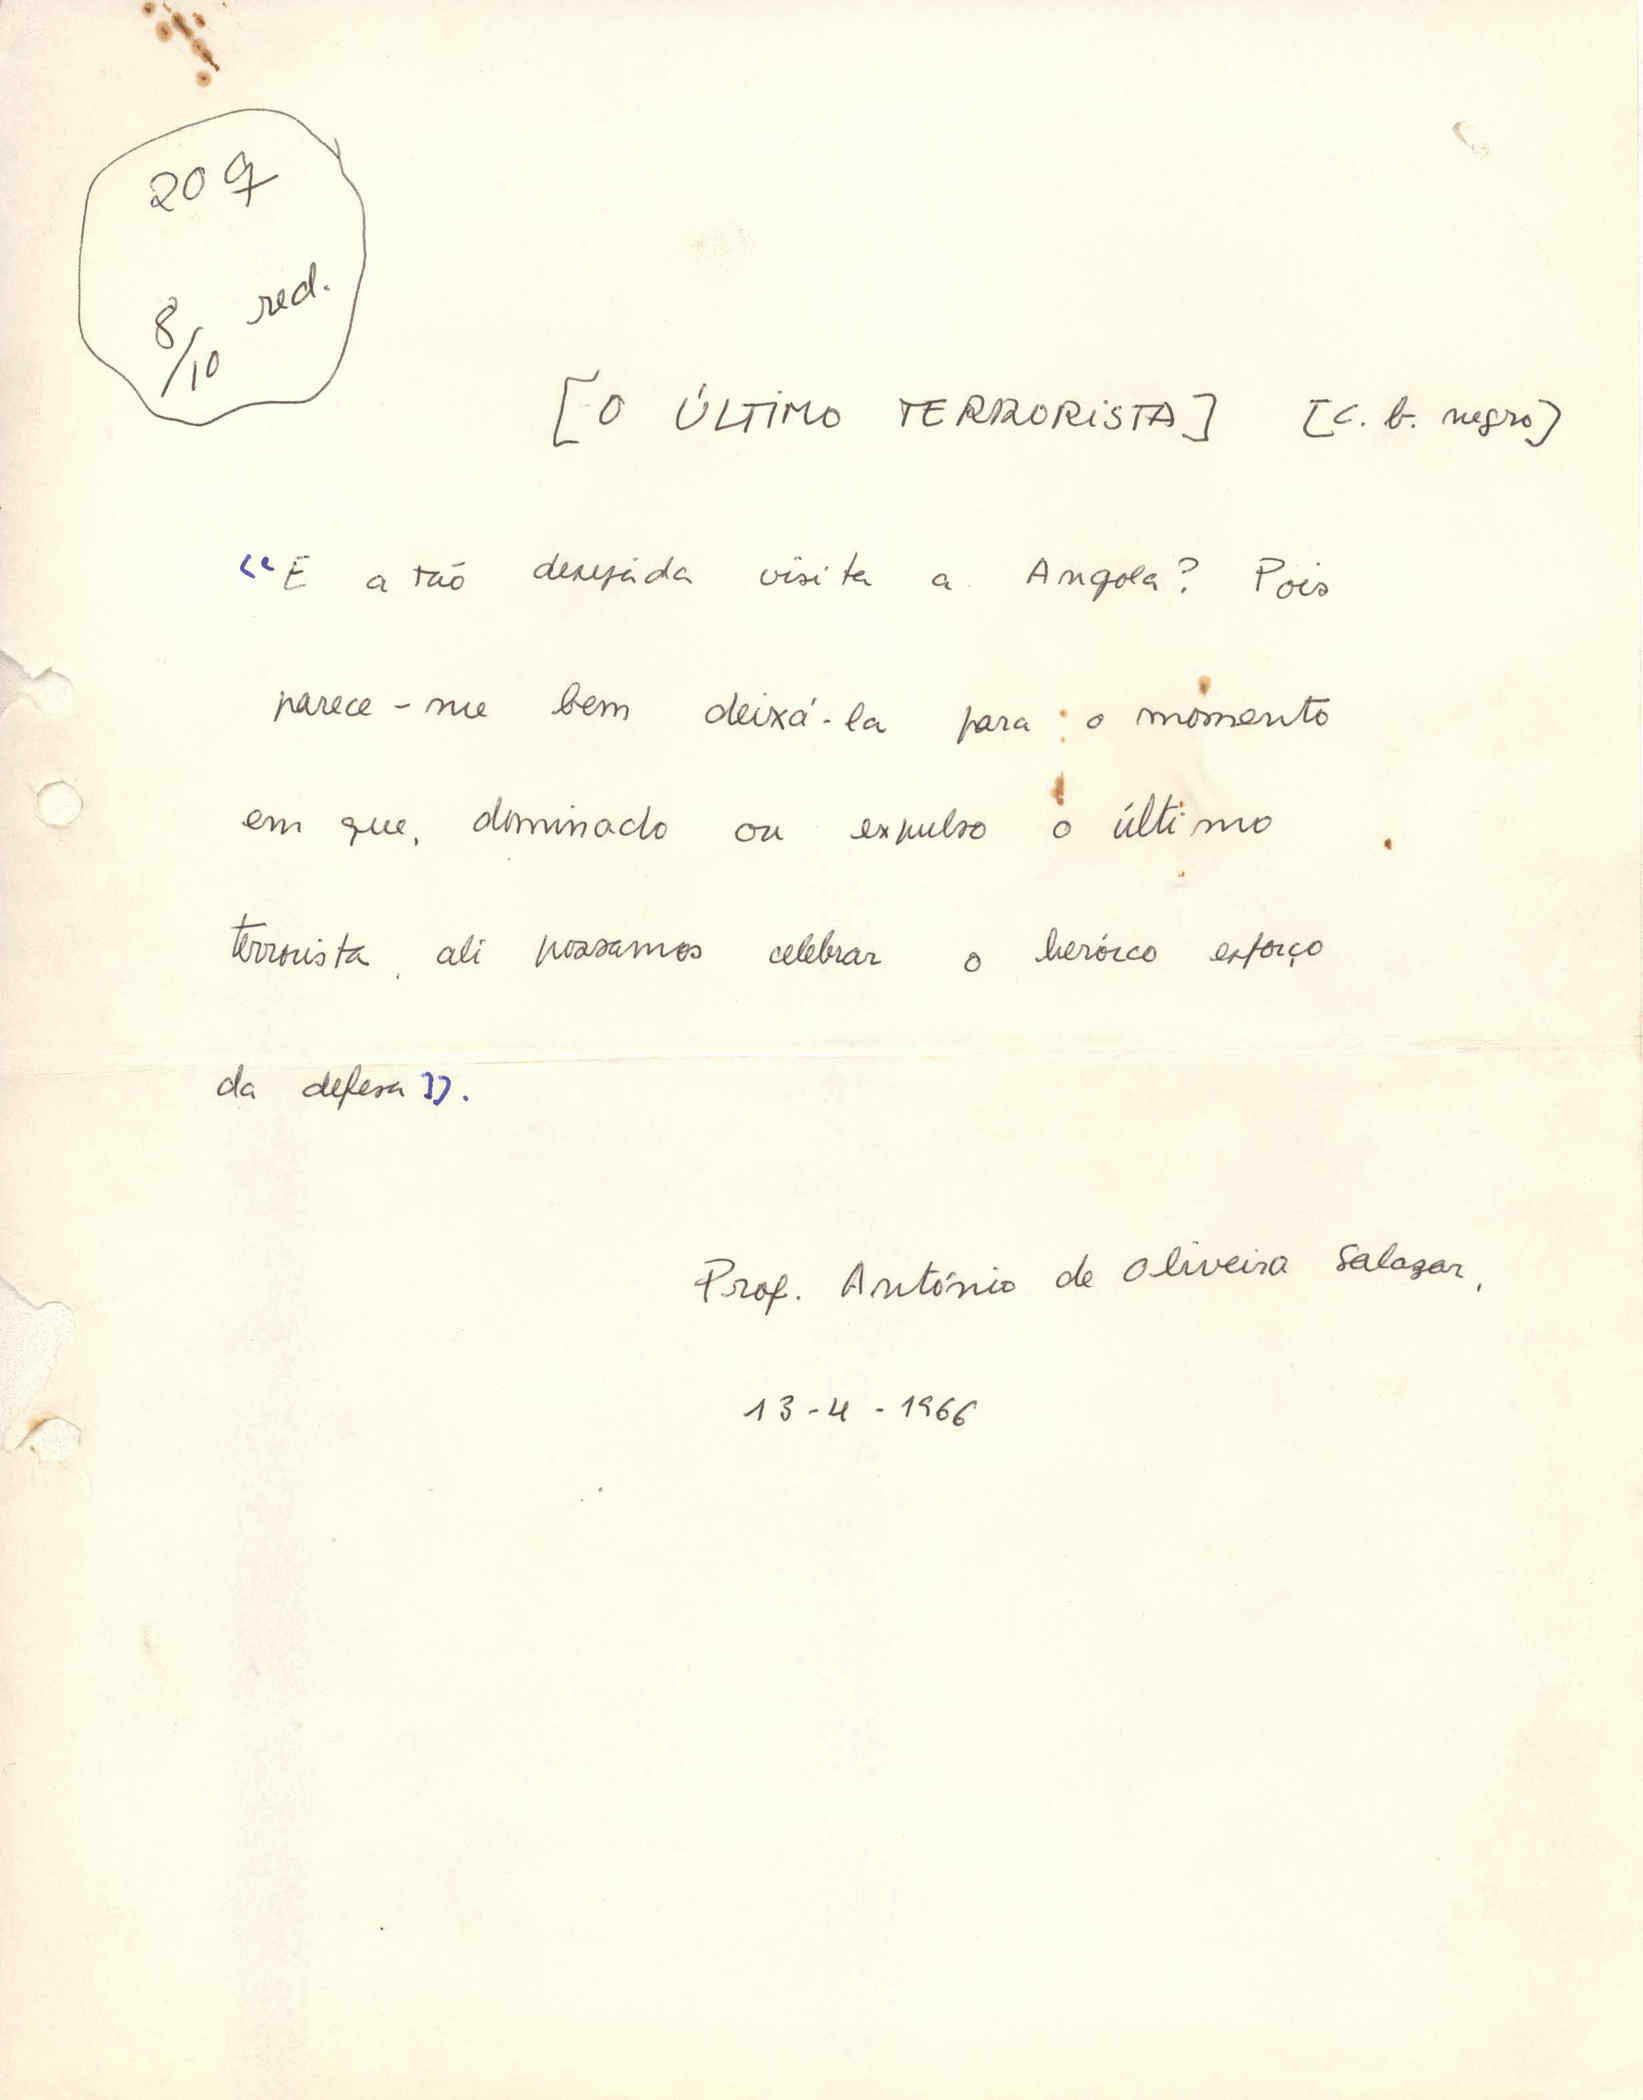 20 q
8/10 red.
[O ÚLTIMO TERRORISTA] [c. b. negro]
«E a tão desejada visita a Angola? Pois
parece-me bem deixá-la para o momento
em que, dominado ou expulso o último
terrorista, ali possamos celebrar o heróico esforço
da defesa».
Prof. António de Oliveira Salazar,
13-4-1966